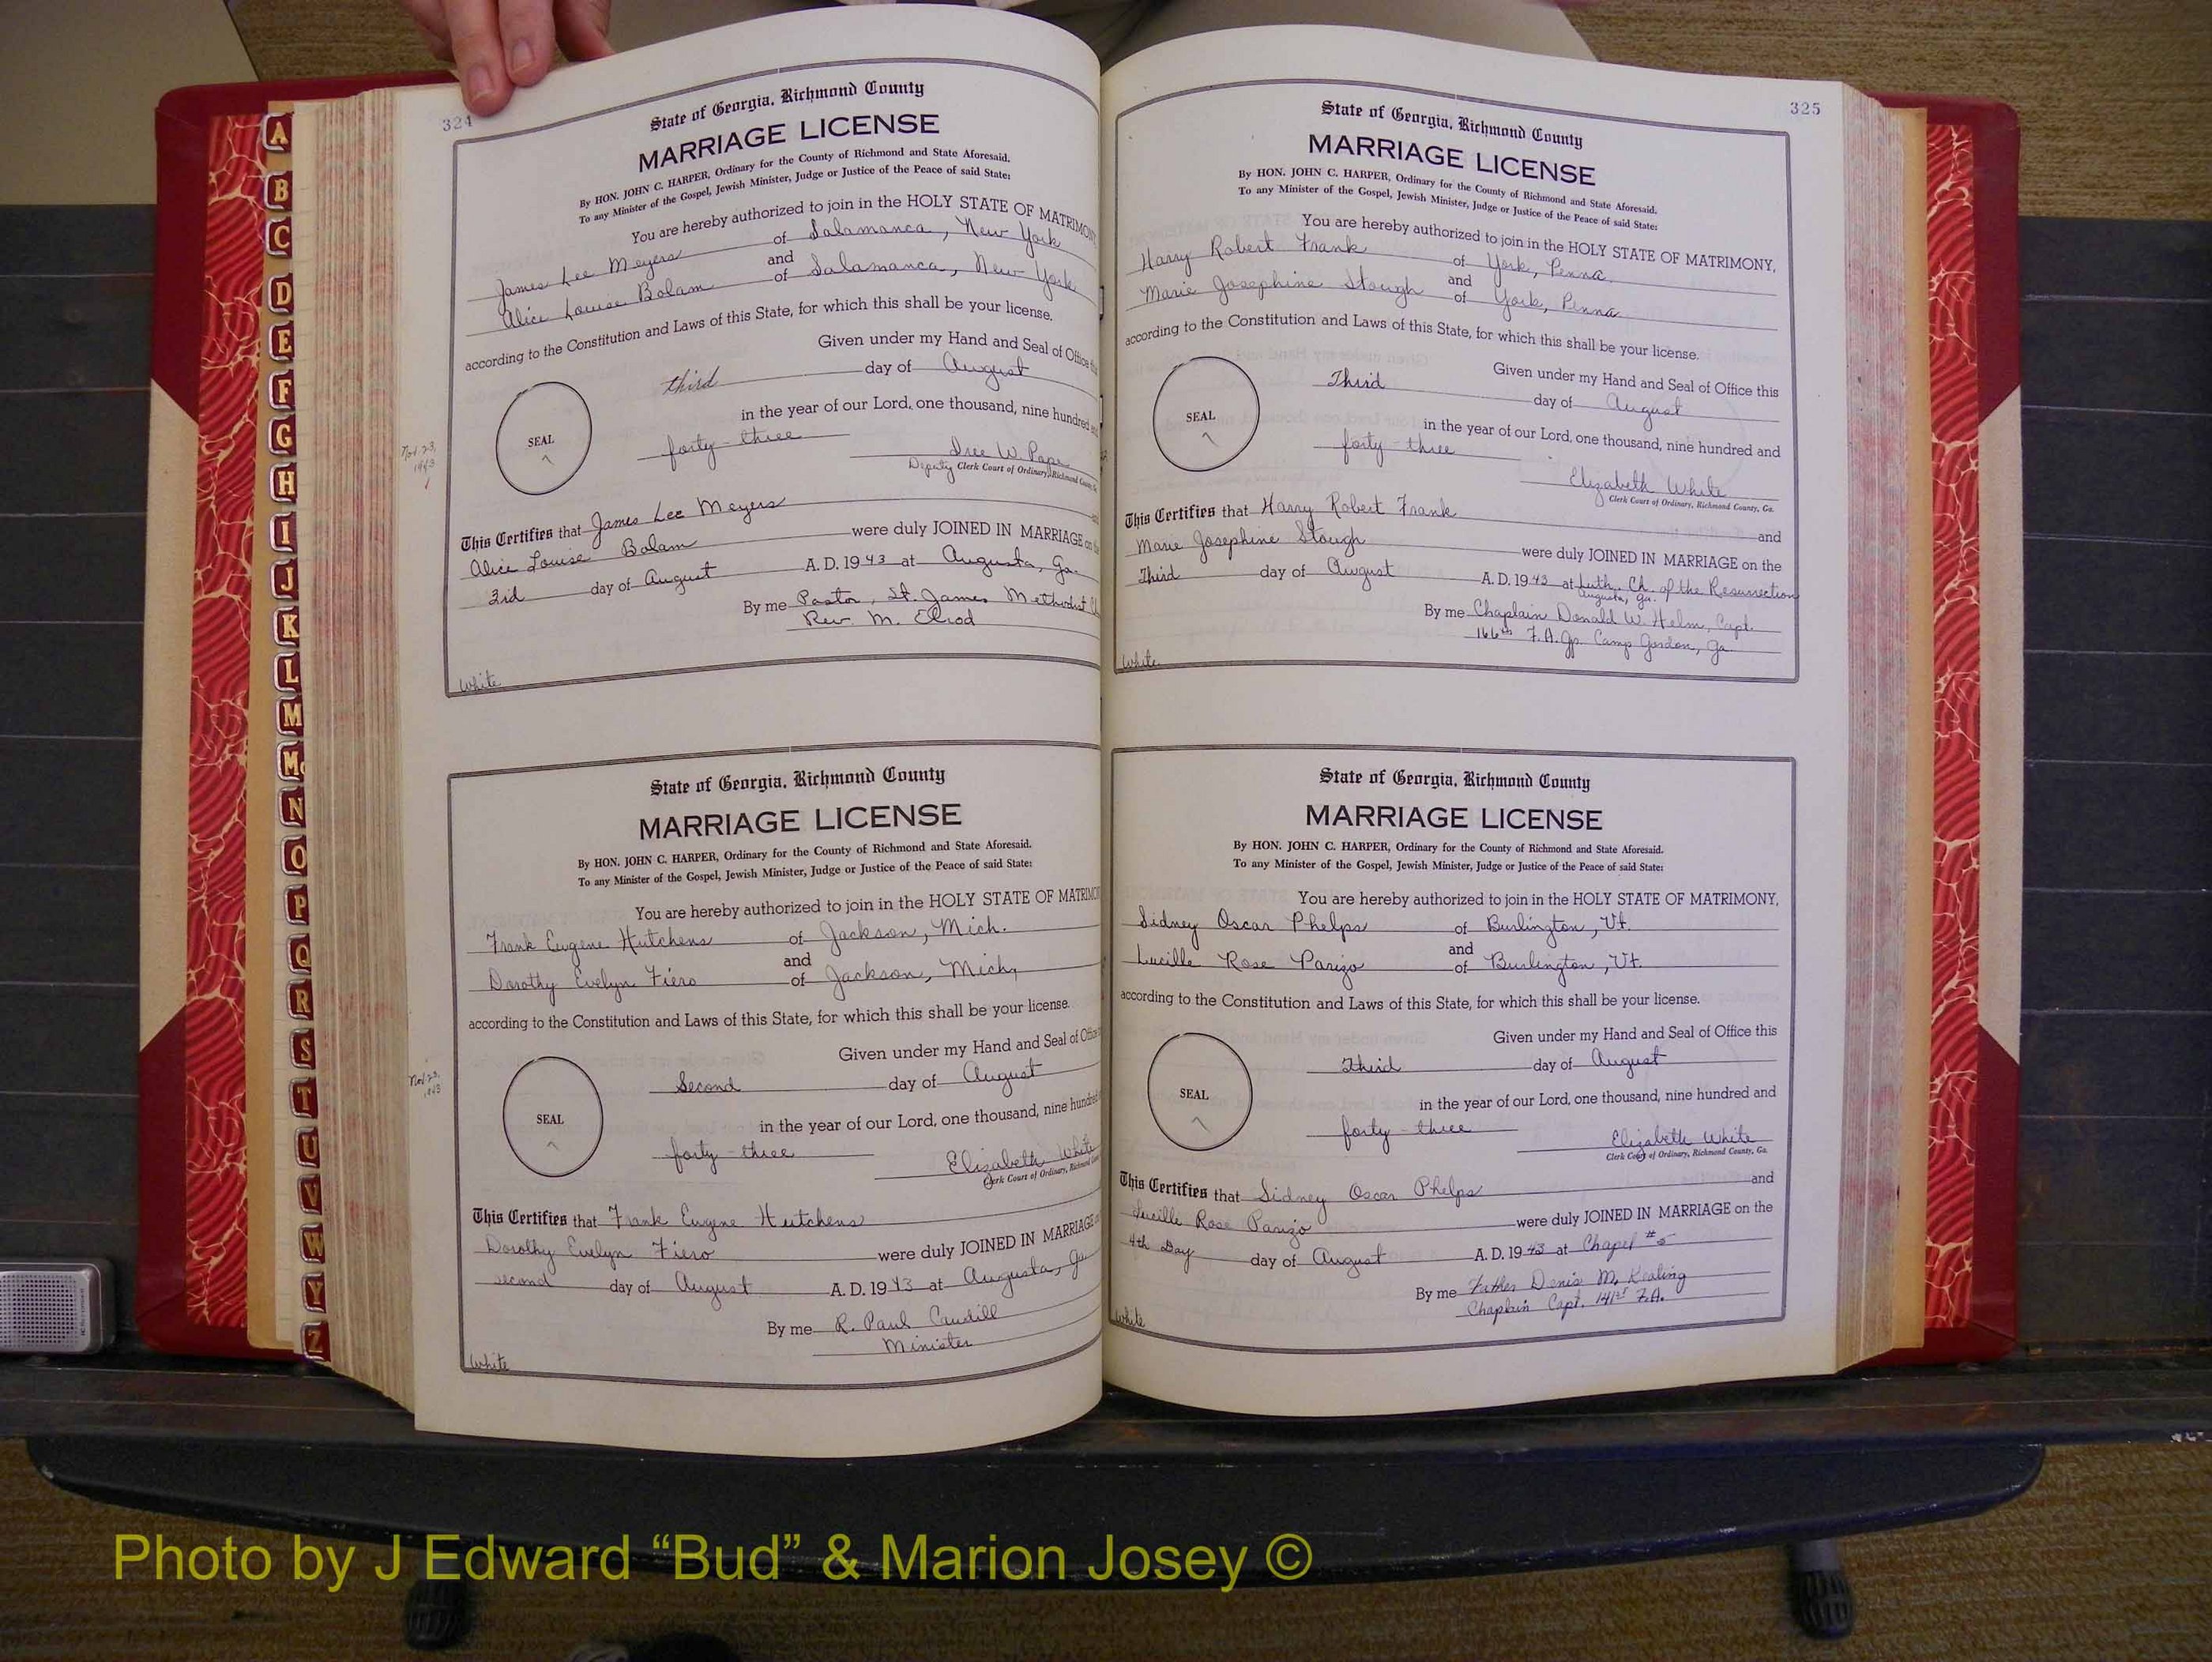 324
State of Georgia, Richmond County
MARRIAGE LICENSE
By HON. JOHN C. HARPER, Ordinary for the County of Richmond and State Aforesaid.
To any Minister of the Gospel, Jewish Minister, Judge or Justice of the Peace of said State:
You are hereby authorized to join in the HOLY STATE OF MATRIMONY
James Lee Meyers of Salamanca, New York
and
Alice Louise Bolam of Salamanca, New York
according to the Constitution and Laws of this State, for which this shall be your license.
Given under my Hand and Seal of Office
third day of August
SEAL
in the year of our Lord, one thousand, nine hundred
forty-three
Deputy Clerk Court of Ordinary, Richmond County
Nov. 23,
1943
This Certifies that James Lee Meyers
Alice Louise Bolam were duly JOINED IN MARRIAGE on
3rd day of August A. D. 1943 at Augusta, Ga.
By me Pastor, St. James Methodist
Rev. M. Elrod
White
State of Georgia, Richmond County
MARRIAGE LICENSE
By HON. JOHN C. HARPER, Ordinary for the County of Richmond and State Aforesaid.
To any Minister of the Gospel, Jewish Minister, Judge or Justice of the Peace of said State:
You are hereby authorized to join in the HOLY STATE OF MATRIMO
Frank Eugene Hutchens of Jackson, Mich.
and
Dorothy Evelyn Fiero of Jackson, Mich.
according to the Constitution and Laws of this State, for which this shall be your license.
Given under my Hand and Seal of Office
Second day of August
SEAL
in the year of our Lord, one thousand, nine hundred
forty-three
Elizabeth White
Clerk Court of Ordinary, Richmond
Nov. 23,
1943
This Certifies that Frank Eugene Hutchens
Dorothy Evelyn Fiero were duly JOINED IN MARRIAGE
second day of August A. D. 1943 at Augusta, Ga
By me R. Paul Caudill
Minister
White
325
State of Georgia, Richmond County
MARRIAGE LICENSE
By HON. JOHN C. HARPER, Ordinary for the County of Richmond and State Aforesaid.
To any Minister of the Gospel, Jewish Minister, Judge or Justice of the Peace of said State:
You are hereby authorized to join in the HOLY STATE OF MATRIMONY,
Harry Robert Frank of York, Penna.
and
Marie Josephine Stough of York, Penna
according to the Constitution and Laws of this State, for which this shall be your license.
Given under my Hand and Seal of Office this
Third day of August
SEAL
in the year of our Lord, one thousand, nine hundred and
forty-three
Elizabeth White
Clerk Court of Ordinary, Richmond County, Ga.
This Certifies that Harry Robert Frank
and
Marie Josephine Stough were duly JOINED IN MARRIAGE on the
Third day of August A. D. 1943 at Luth. Ch. of the Resurrection
Augusta, Ga.
By me Chaplain Donald W. Helm, Capt.
166th F.A. Gp. Camp Gordon, Ga
White
State of Georgia, Richmond County
MARRIAGE LICENSE
By HON. JOHN C. HARPER, Ordinary for the County of Richmond and State Aforesaid.
To any Minister of the Gospel, Jewish Minister, Judge or Justice of the Peace of said State:
You are hereby authorized to join in the HOLY STATE OF MATRIMONY,
Sidney Oscar Phelps of Burlington, Vt.
and
Lucille Rose Parizo of Burlington, Vt.
according to the Constitution and Laws of this State, for which this shall be your license.
Given under my Hand and Seal of Office this
Third day of August
SEAL
in the year of our Lord, one thousand, nine hundred and
forty-three
Elizabeth White
Clerk Court of Ordinary, Richmond County, Ga.
This Certifies that Sidney Oscar Phelps and
Lucille Rose Parizo were duly JOINED IN MARRIAGE on the
4th Day day of August A. D. 1943 at Chapel #5
By me Father Denis M. Kealing
Chaplain Capt. 141st F.A.
White
A
B
C
D
E
F
G
H
I
J
K
L
M
Mc
N
O
P
Q
R
S
T
U
V
W
Y
Z
Photo by J Edward “Bud” & Marion Josey ©